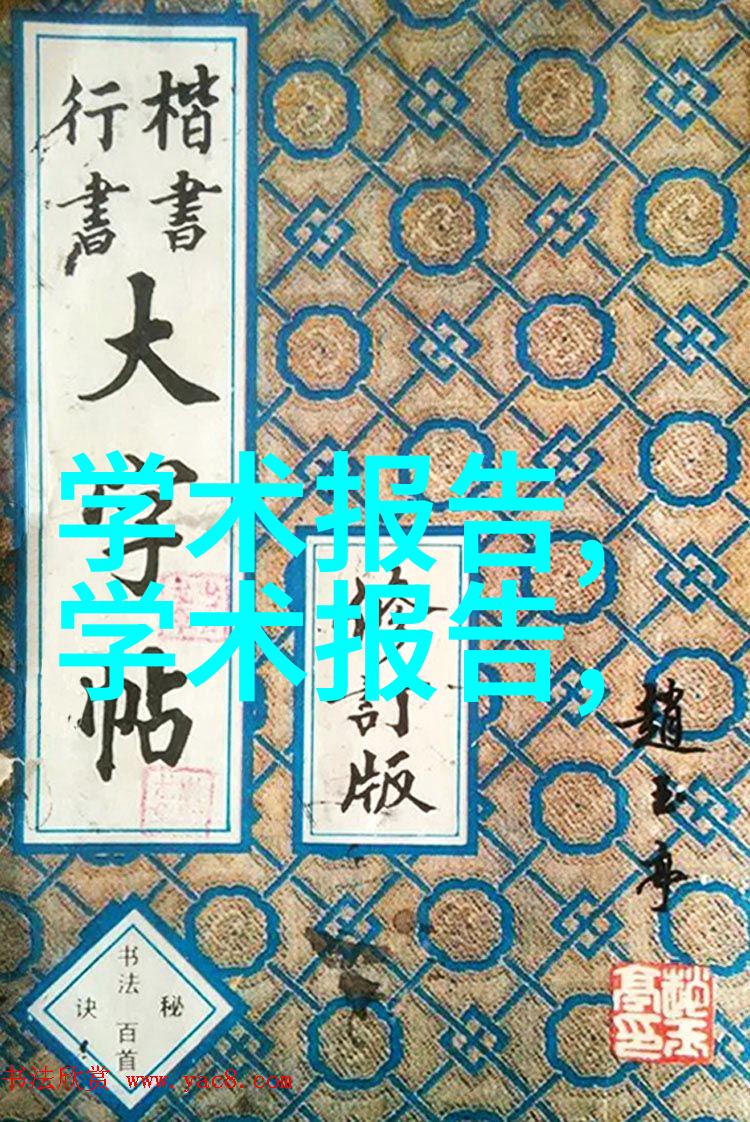 楷書
行書
大字帖
学术报告,
学术报告,
修訂版
趙玉亭
书法
秘诀
百首
书法欣赏 www.yac8.com